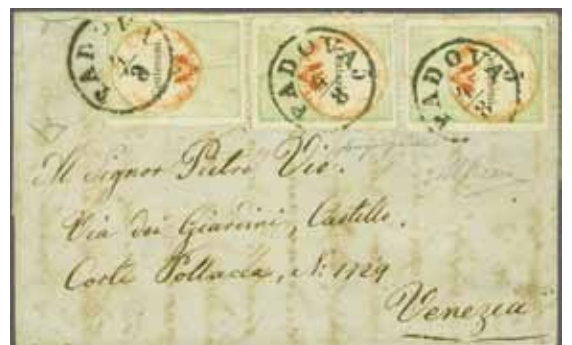 PADOVA PADOVA J PADOVA J
Al Signor Pietro Vio.
Via dei Giardini, Castello.
Corte Pollacca, N: 1729
Venezia